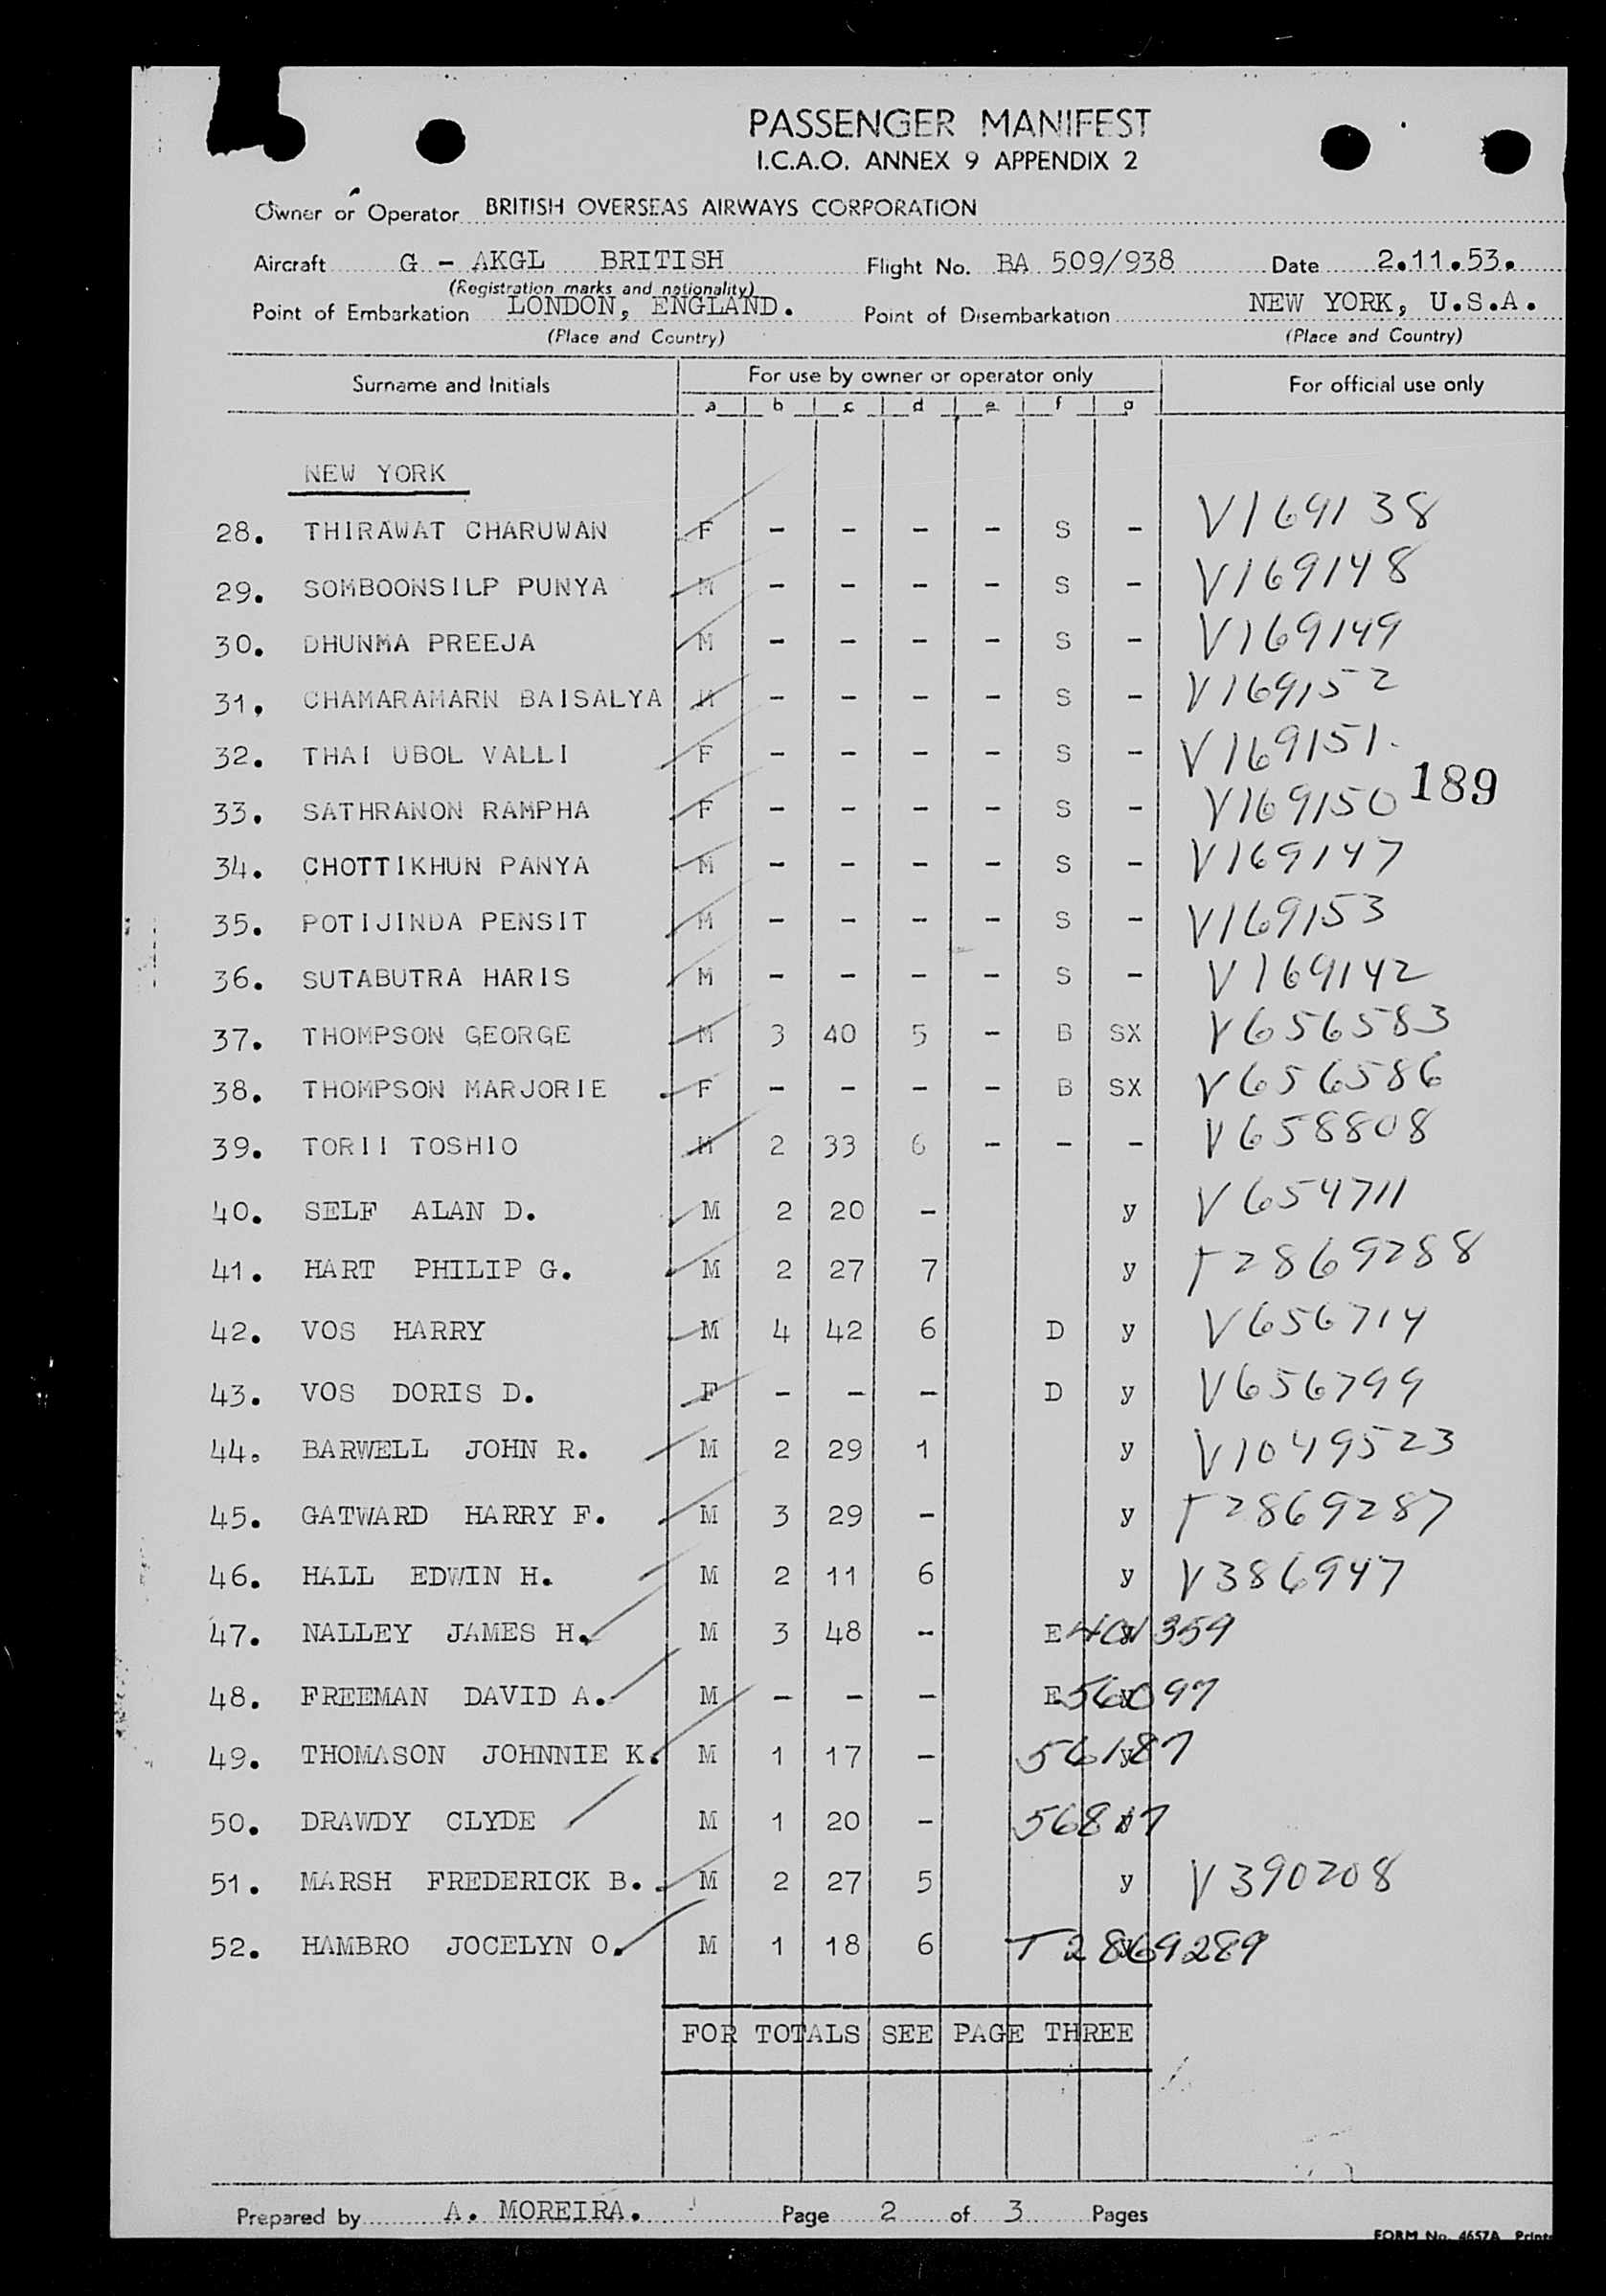 PASSENGER MANIFEST
I.C.A.O. ANNEX 9 APPENDIX 2
Owner or Operator BRITISH OVERSEAS AIRWAYS CORPORATION
Aircraft G - AKGL BRITISH Flight No. BA 509/938 Date 2.11.53.
(Registration marks and nationality)
Point of Embarkation LONDON, ENGLAND. Point of Disembarkation NEW YORK, U.S.A.
(Place and Country) (Place and Country)
Surname and Initials For use by owner or operator only For official use only
a b c d e f g
NEW YORK
28. THIRAWAT CHARUWAN F - - - - S - V169138
29. SOMBOONSILP PUNYA M - - - - S - V169148
30. DHUNMA PREEJA M - - - - S - V169149
31. CHAMARAMARN BAISALYA M - - - - S - V169152
32. THAI UBOL VALLI F - - - - S - V169151.
189
33. SATHRANON RAMPHA F - - - - S - V169150
34. CHOTTIKHUN PANYA M - - - - S - V169147
35. POTIJINDA PENSIT M - - - - S - V169153
36. SUTABUTRA HARIS M - - - - S - V169142
37. THOMPSON GEORGE M 3 40 5 - B SX V656583
38. THOMPSON MARJORIE F - - - - B SX V656586
39. TORII TOSHIO M 2 33 6 - - - V658808
40. SELF ALAN D. M 2 20 - y V654711
41. HART PHILIP G. M 2 27 7 y T2869288
42. VOS HARRY M 4 42 6 D y V656714
43. VOS DORIS D. F - - - D y V656799
44. BARWELL JOHN R. M 2 29 1 y V1049523
45. GATWARD HARRY F. M 3 29 - y T2869287
46. HALL EDWIN H. M 2 11 6 y V386947
47. NALLEY JAMES H. M 3 48 - E y
48. FREEMAN DAVID A. M - - - E y 56097
49. THOMASON JOHNNIE K. M 1 17 - y 56187
50. DRAWDY CLYDE M 1 20 -
51. MARSH FREDERICK B. M 2 27 5 y V390208
52. HAMBRO JOCELYN O. M 1 18 6 y T2869289
FOR TOTALS SEE PAGE THREE
Prepared by A. MOREIRA. Page 2 of 3 Pages
FORM No. 4657A